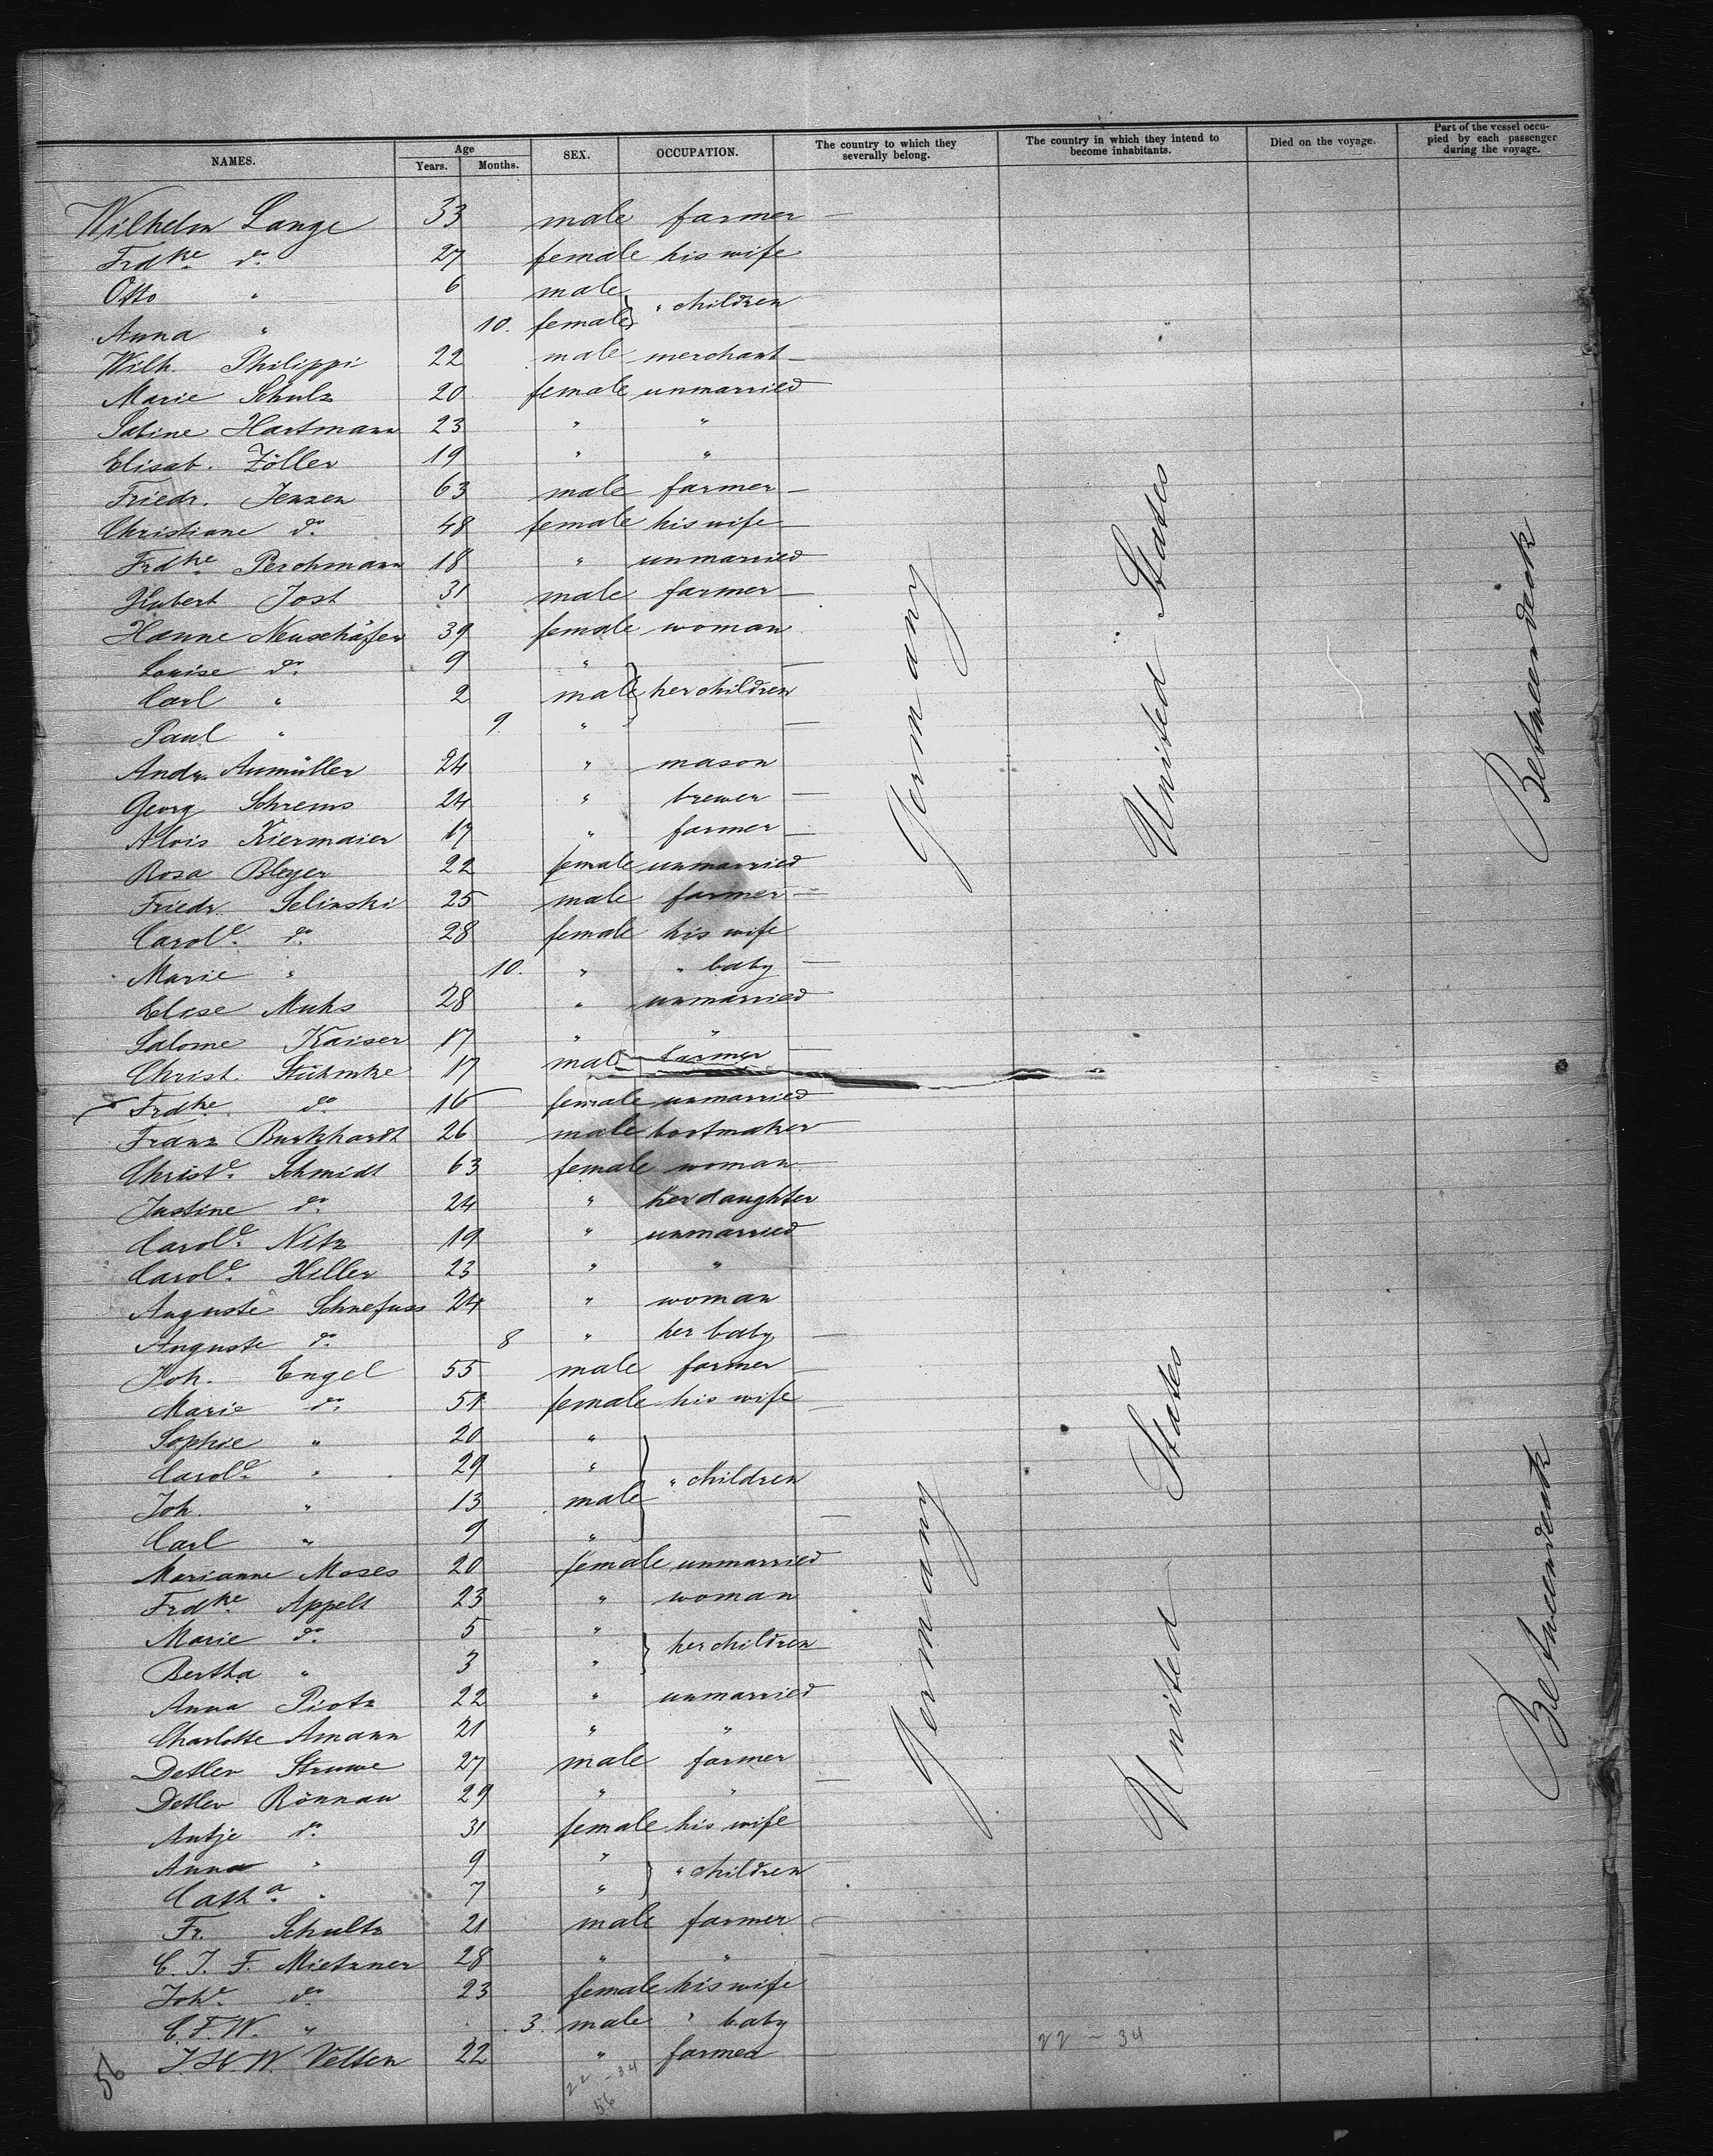 NAMES. Age Years. Months. SEX. OCCUPATION. The country to which they severally belong. The country in which they intend to become inhabitants. Died on the voyage. Part of the vessel occupied by each passenger during the voyage.
Wilhelm Lange 33 male farmer —
Frdke do. 27 female his wife
Otto " 6 male } " children
Anna " 10. female }
Wilh. Philippi 22 male merchant —
Marie Schulz 20 female unmarried
Sabine Hartmann 23 " "
Elisab. Zöller 19 " "
Friedr. Jenzen 63 male farmer —
Christiane do. 48 female his wife —
Frdke Perchmann 18 " unmarried
Hubert Jost 31 male farmer —
Hanne Neuschäfer 39 female woman
Louise do. 9 " —
Carl " 2 male } her children
Paul " 9. " —
Andr. Aumüller 24 " mason
Georg Schrems 24 " brewer —
Alois Kiermaier 17 " farmer —
Rosa Bleyer 22 female unmarried
Friedr. Selinski 25 male farmer —
Carole. do. 28 female his wife
Marie " 10. " " baby —
Elise Muhs 28 " unmarried
Salome Kaiser 17 " "
Christ. Stühmke 17 male farmer
Frdke. do 16 female unmarried
Franz Burkhardt 26 male bootmaker
Christe. Schmidt 63 female woman
Justine do. 24 " her daughter
Carole. Nitz 19 " unmarried
Carole. Heller 23 " "
Auguste Schnefuss 24 " woman
Auguste do. 8 " her baby —
Joh. Engel 55 male farmer —
Marie do. 51 female his wife —
Sophie " 20 "
Carole. " 29 " } " children
Joh. " 13 male
Carl " 9 "
Marianne Moses 20 female unmarried
Frdke Appelt 23 " woman
Marie do. 5 " } her children
Bertha " 3 "
Anna Piotz 22 " unmarried
Charlotte Amann 21 " "
Detlev Struwe 27 male farmer
Detlev Rönnau 29 " " —
Antje do. 31 female his wife
Anna " 9 " } " children
Catha. " 7 "
Fr. Schultz 21 male farmer —
C. J. F. Mietzner 28 " " —
Johe. do. 23 female his wife
C. F. W. " 3. male " baby
J. H. W. Velten 22 " farmer
Germany
United States
Betweendeck
Germany
United States
Betweendeck
56
22 - 34
56
22 - 34